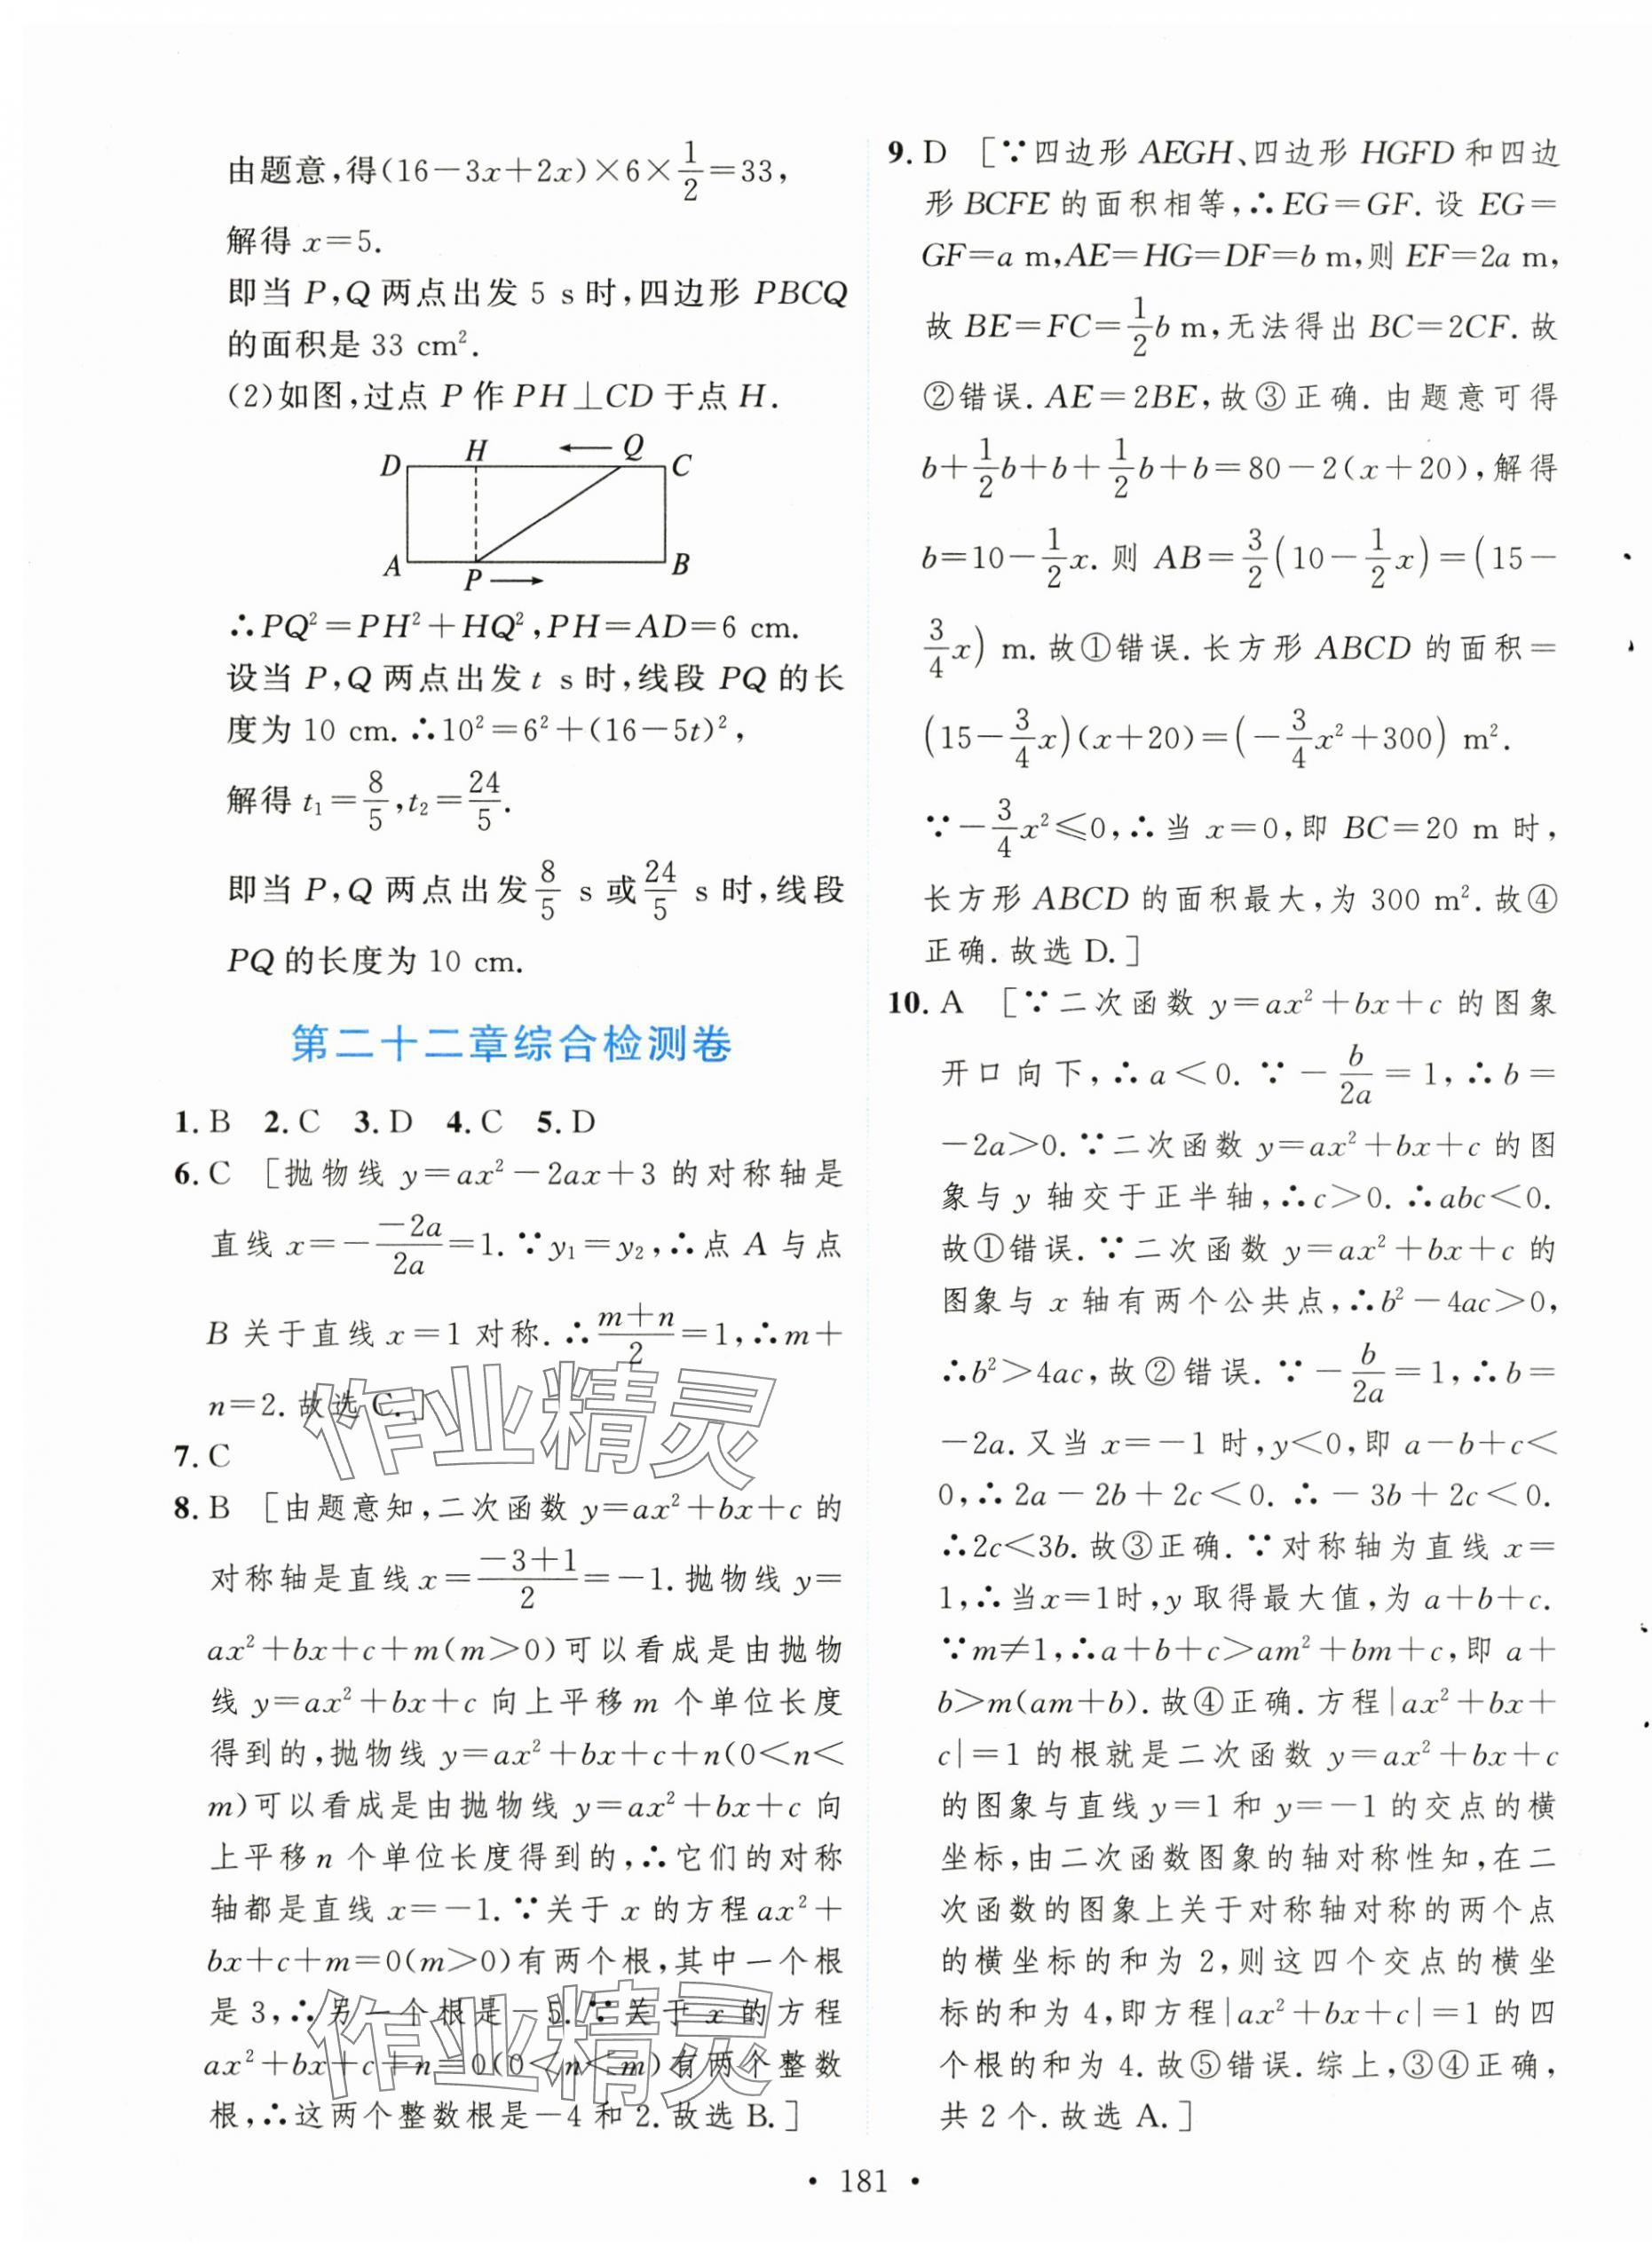 由题意,得(16-3x+2x)×6×1/2=33,
解得 x=5.
即当 P,Q 两点出发 5 s 时,四边形 PBCQ
的面积是 33 cm².
(2)如图,过点 P 作 PH⊥CD 于点 H.
D H ← Q C
A P → B
∴PQ²=PH²+HQ²,PH=AD=6 cm.
设当 P,Q 两点出发 t s 时,线段 PQ 的长
度为 10 cm.∴10²=6²+(16-5t)²,
解得 t₁=8/5,t₂=24/5.
即当 P,Q 两点出发 8/5 s 或 24/5 s 时,线段
PQ 的长度为 10 cm.
第二十二章综合检测卷
1. B 2. C 3. D 4. C 5. D
6. C [抛物线 y=ax²-2ax+3 的对称轴是
直线 x=-(-2a)/(2a)=1.∵y₁=y₂,∴点 A 与点
B 关于直线 x=1 对称.∴(m+n)/2=1,∴m+
n=2.故选 C.]
7. C
8. B [由题意知,二次函数 y=ax²+bx+c 的
对称轴是直线 x=(-3+1)/2=-1.抛物线 y=
ax²+bx+c+m(m>0)可以看成是由抛物
线 y=ax²+bx+c 向上平移 m 个单位长度
得到的,抛物线 y=ax²+bx+c+n(0<n<
m)可以看成是由抛物线 y=ax²+bx+c 向
上平移 n 个单位长度得到的,∴它们的对称
轴都是直线 x=-1.∵关于 x 的方程 ax²+
bx+c+m=0(m>0)有两个根,其中一个根
是 3,∴另一个根是-5.∵关于 x 的方程
ax²+bx+c+n=0(0<n<m)有两个整数
根,∴这两个整数根是-4 和 2.故选 B.]
9. D [∵四边形 AEGH、四边形 HGFD 和四边
形 BCFE 的面积相等,∴EG=GF.设 EG=
GF=a m,AE=HG=DF=b m,则 EF=2a m,
故 BE=FC=1/2b m,无法得出 BC=2CF.故
②错误.AE=2BE,故③正确.由题意可得
b+1/2b+b+1/2b+b=80-2(x+20),解得
b=10-1/2x.则 AB=3/2(10-1/2x)=(15-
3/4x) m.故①错误.长方形 ABCD 的面积=
(15-3/4x)(x+20)=(-3/4x²+300) m².
∵-3/4x²≤0,∴当 x=0,即 BC=20 m 时,
长方形 ABCD 的面积最大,为 300 m².故④
正确.故选 D.]
10. A [∵二次函数 y=ax²+bx+c 的图象
开口向下,∴a<0.∵-b/(2a)=1,∴b=
-2a>0.∵二次函数 y=ax²+bx+c 的图
象与 y 轴交于正半轴,∴c>0.∴abc<0.
故①错误.∵二次函数 y=ax²+bx+c 的
图象与 x 轴有两个公共点,∴b²-4ac>0,
∴b²>4ac,故②错误.∵-b/(2a)=1,∴b=
-2a.又当 x=-1 时,y<0,即 a-b+c<
0,∴2a-2b+2c<0.∴-3b+2c<0.
∴2c<3b.故③正确.∵对称轴为直线 x=
1,∴当x=1时,y 取得最大值,为 a+b+c.
∵m≠1,∴a+b+c>am²+bm+c,即 a+
b>m(am+b).故④正确.方程|ax²+bx+
c|=1 的根就是二次函数 y=ax²+bx+c
的图象与直线 y=1 和 y=-1 的交点的横
坐标,由二次函数图象的轴对称性知,在二
次函数的图象上关于对称轴对称的两个点
的横坐标的和为 2,则这四个交点的横坐
标的和为 4,即方程|ax²+bx+c|=1 的四
个根的和为 4.故⑤错误.综上,③④正确,
共 2 个.故选 A.]
作业精灵
作业精灵
· 181 ·